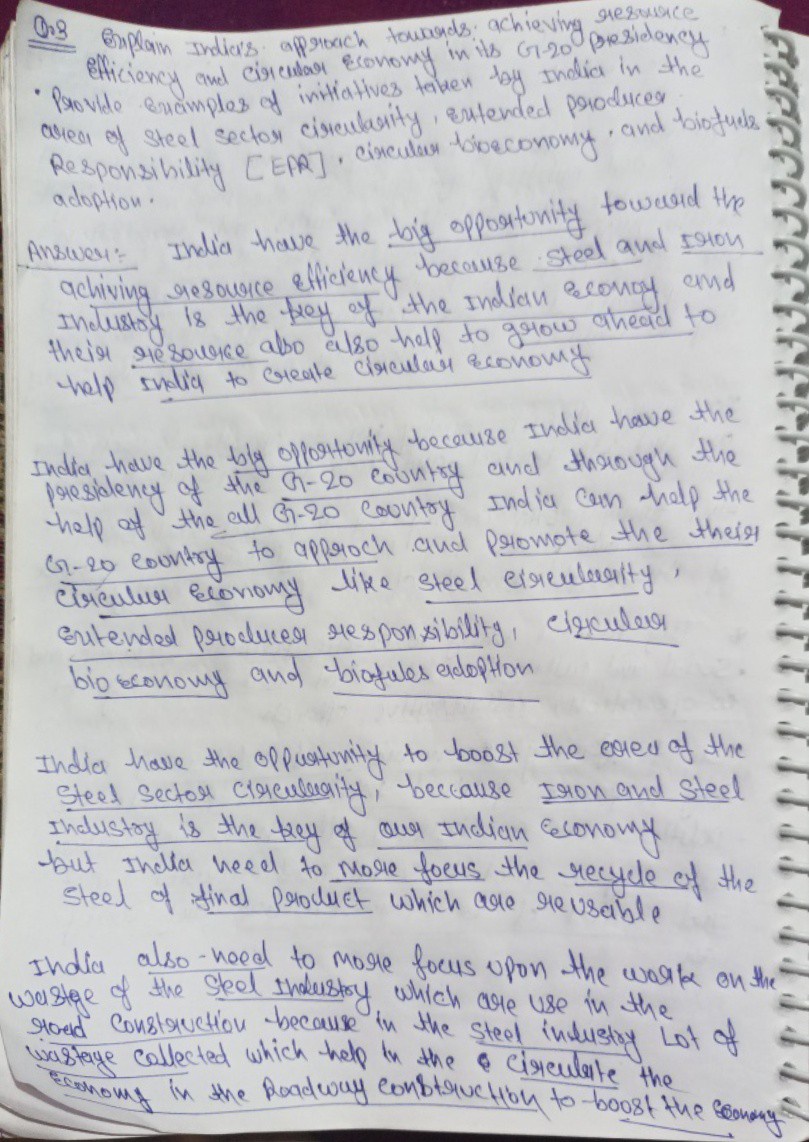 Q.3 Explain India's approach towards achieving resource
efficiency and circular Economy in its G-20 presidency
• Provide examples of initiatives taken by India in the
area of steel sector circularity, extended producer
Responsibility [EPR], circular bioeconomy, and biofuels
adoption.
Answer:- India have the big opportunity toward the
achiving resource efficiency because steel and Iron
Industry is the key of the Indian Econoy and
their resource also also help to grow ahead to
help India to create circular Economy
India have the big opportunity because India have the
presidency of the G-20 country and through the
help of the all G-20 country India can help the
G-20 country to approch and promote the their
circular Economy like steel circularity,
Extended producer responsibility, circular
bio economy and biofules adoption
India have the oppurtunity to boost the area of the
Steel Sector circularity, because Iron and Steel
Industry is the key of our Indian Economy
but India need to more focus the recycle of the
steel of final product which are reusable
India also need to more focus upon the work on the
wastge of the Steel Industry which are use in the
road construction because in the steel industry Lot of
wastage collected which help in the circulate the
economy in the Roadway construction to boost the Economy